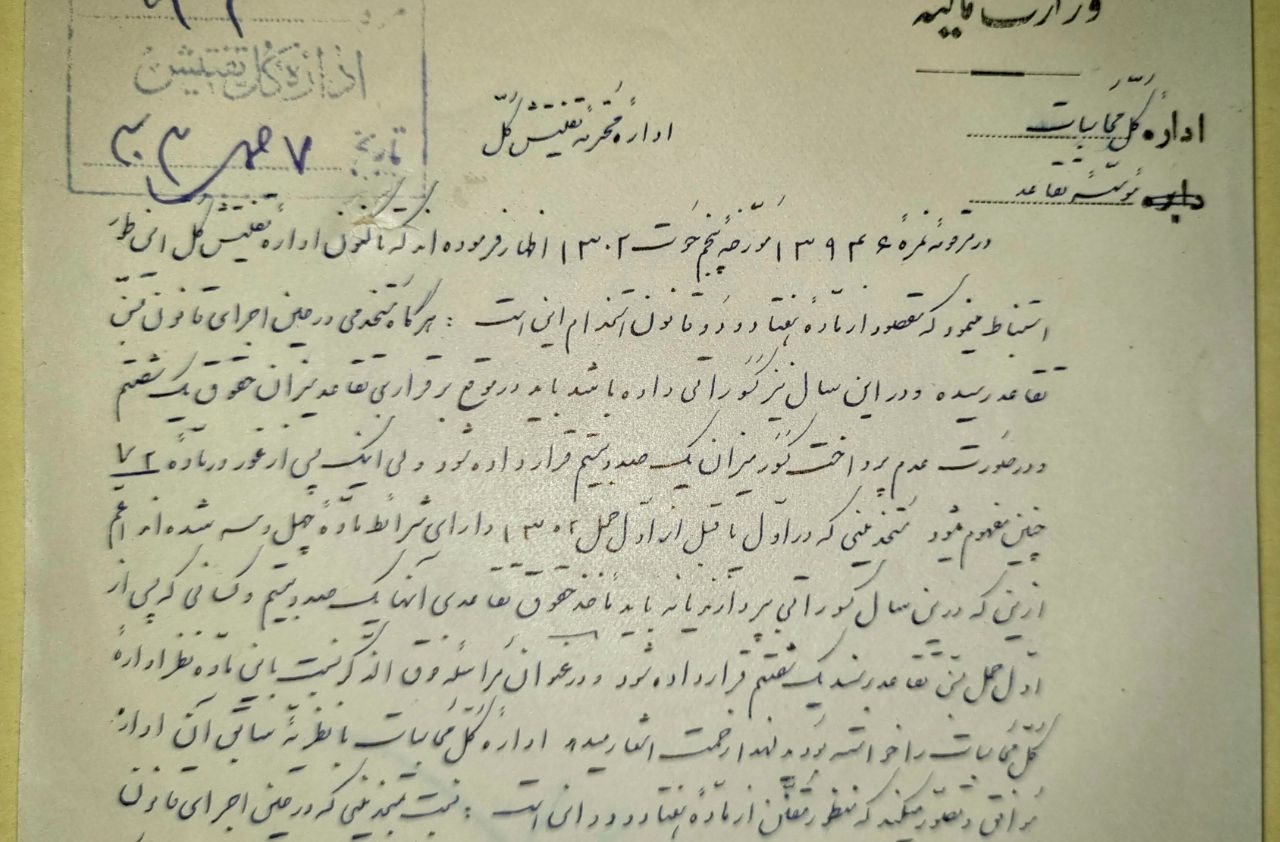 وزارت مالیه
ادارهٔ کل محاسبات
دایره مؤسسهٔ تقاعد
ادارهٔ کل تفتیش
تاریخ ۷
ادارهٔ محترمهٔ تفتیش کل
در مرقومهٔ نمرهٔ ۱۳۹۴۶ مورخهٔ پنجم حوت ۱۳۰۲ اظهار فرموده‌اند که تاکنون ادارهٔ تفتیش کل این طور
استنباط مینمود که مقصود از مادهٔ هفتاد و دو قانون استخدام این است : هرگاه مستخدمی در حین اجرای قانون بسن
تقاعد رسیده و در این سال نیز کسوراتی داده باشد باید در موقع برقراری تقاعد میزان حقوق یک شصتم
و در صورت عدم پرداخت کسور میزان یک صد و بیستم قرار داده شود ولی اینک پس از غور در مادهٔ ۷۲
چنین مفهوم میشود مستخدمینی که در اول یا قبل از اول حمل ۱۳۰۲ دارای شرائط مادهٔ چهل و سه شده‌اند اعم
از این که در این سال کسوراتی بپردازند یا نه باید مأخذ حقوق تقاعدی آنها یک صد و بیستم و کسانی که پس از
اول حمل بسن تقاعد برسند یک شصتم قرار داده شود و در عنوان مراسلهٔ فوق الذکر نسبت باین ماده نظر ادارهٔ
کل محاسبات را خواسته بودند لهذا زحمت اشعار میدهد ادارهٔ کل محاسبات با نظریهٔ سابق آن اداره
موافق و تصور میکند که منظور مقنن از مادهٔ هفتاد و دو این است : نسبت بمستخدمینی که در حین اجرای قانون